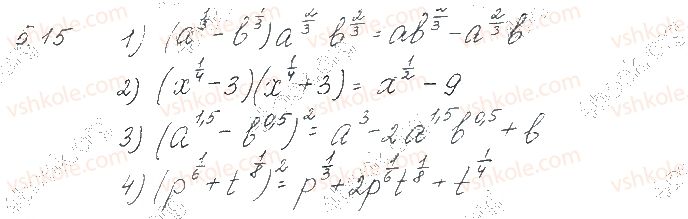 5.15 1) (a^{1/3} - b^{1/3}) a^{2/3} b^{2/3} = ab^{2/3} - a^{2/3}b
2) (x^{1/4} - 3)(x^{1/4} + 3) = x^{1/2} - 9
3) (a^{1,5} - b^{0,5})^2 = a^3 - 2a^{1,5}b^{0,5} + b
4) (p^{1/6} + t^{1/8})^2 = p^{1/3} + 2p^{1/6}t^{1/8} + t^{1/4}
vshkole.com